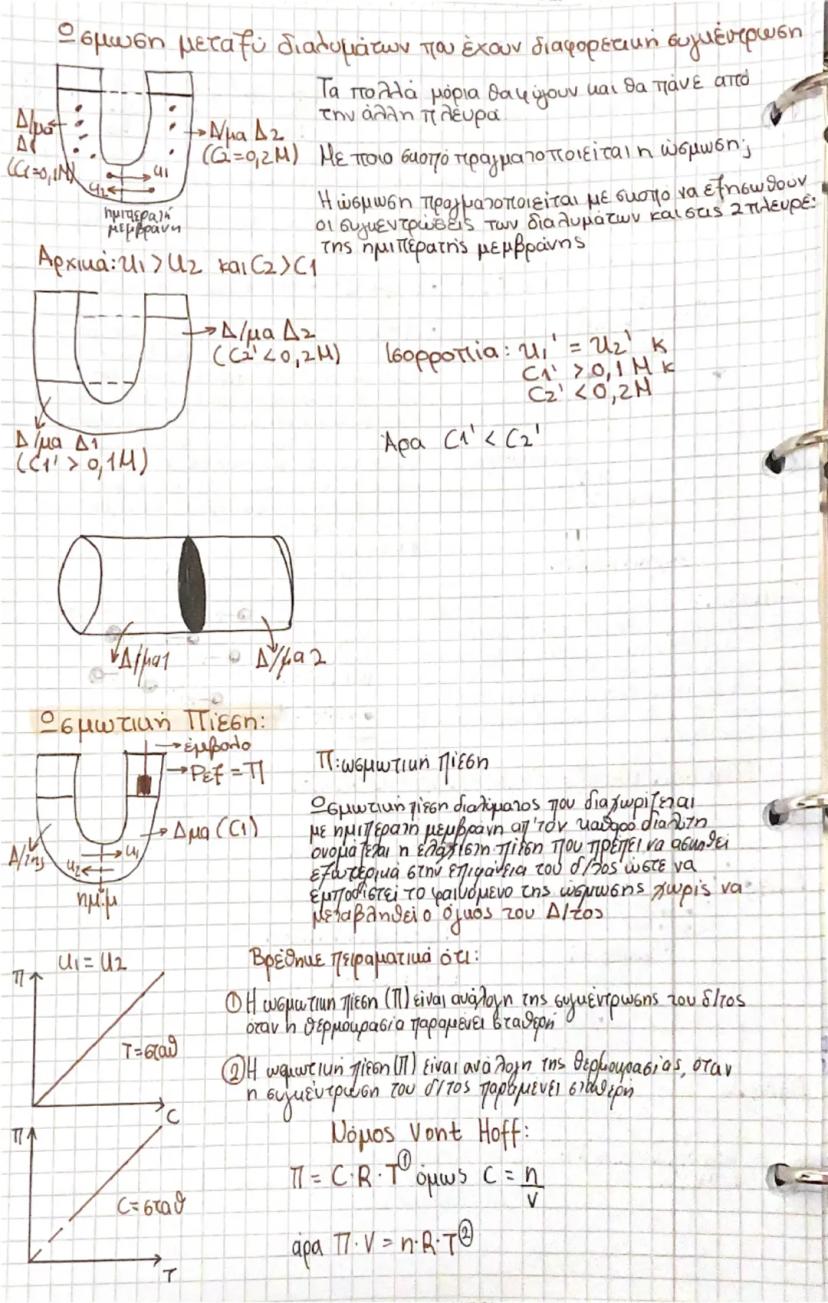 Ώσμωση μεταξύ διαλυμάτων που έχουν διαφορετική συγκέντρωση
Τα πολλά μόρια θα φύγουν και θα πάνε από
την άλλη πλευρά
Δ/μα
Δ1
(C1=0,1M)
Δ/μα Δ2
(C2=0,2M)
u1
u2
ημιπερατή
μεμβράνη
Με ποιο σκοπό πραγματοποιείται η ώσμωση;
Η ώσμωση πραγματοποιείται με σκοπο να εξησωθουν
οι συγκεντρώσεις των διαλυμάτων και στις 2 πλευρές
της ημιπερατής μεμβράνης
Αρχικά: u1 > u2 και C2 > C1
Δ/μα Δ2
(C2' < 0,2M)
Δ/μα Δ1
(C1' > 0,1M)
Ισορροπία: u1' = u2' κ
C1' > 0,1M κ
C2' < 0,2M
Άρα C1' < C2'
Δ/μα1
Δ/μα 2
Ωσμωτική Πίεση:
έμβολο
Pεξ = Π
Δμα (C1)
Δ/της
u1
u2
ημ.μ
Π: ωσμωτική πίεση
Ωσμωτική πίεση διαλύματος που διαχωρίζεται
με ημιπερατή μεμβράνη απ' τον καθαρο διαλύτη
ονομάζεται η ελάχιστη πίεση που πρέπει να ασκηθεί
εξωτερικά στην επιφάνεια του δ/τος ώστε να
εμποδιστεί το φαινόμενο της ώσμωσης χωρίς να
μεταβληθεί ο όγκος του Δ/τος
u1 = u2
Π
T=σταθ
C
Βρέθηκε πειραματικά ότι:
① Η ωσμωτικη πίεση (Π) είναι ανάλογη της συγκέντρωσης του δ/τος
όταν η θερμοκρασία παραμένει σταθερή
② Η ωσμωτική πίεση (Π) είναι ανάλογη της θερμοκρασίας, όταν
η συγκέντρωση του δ/τος παραμένει σταθερή
Π
C=σταθ
T
Νόμος Vont Hoff:
Π = C·R·T ① όμως C = n/V
άρα Π·V = n·R·T ②